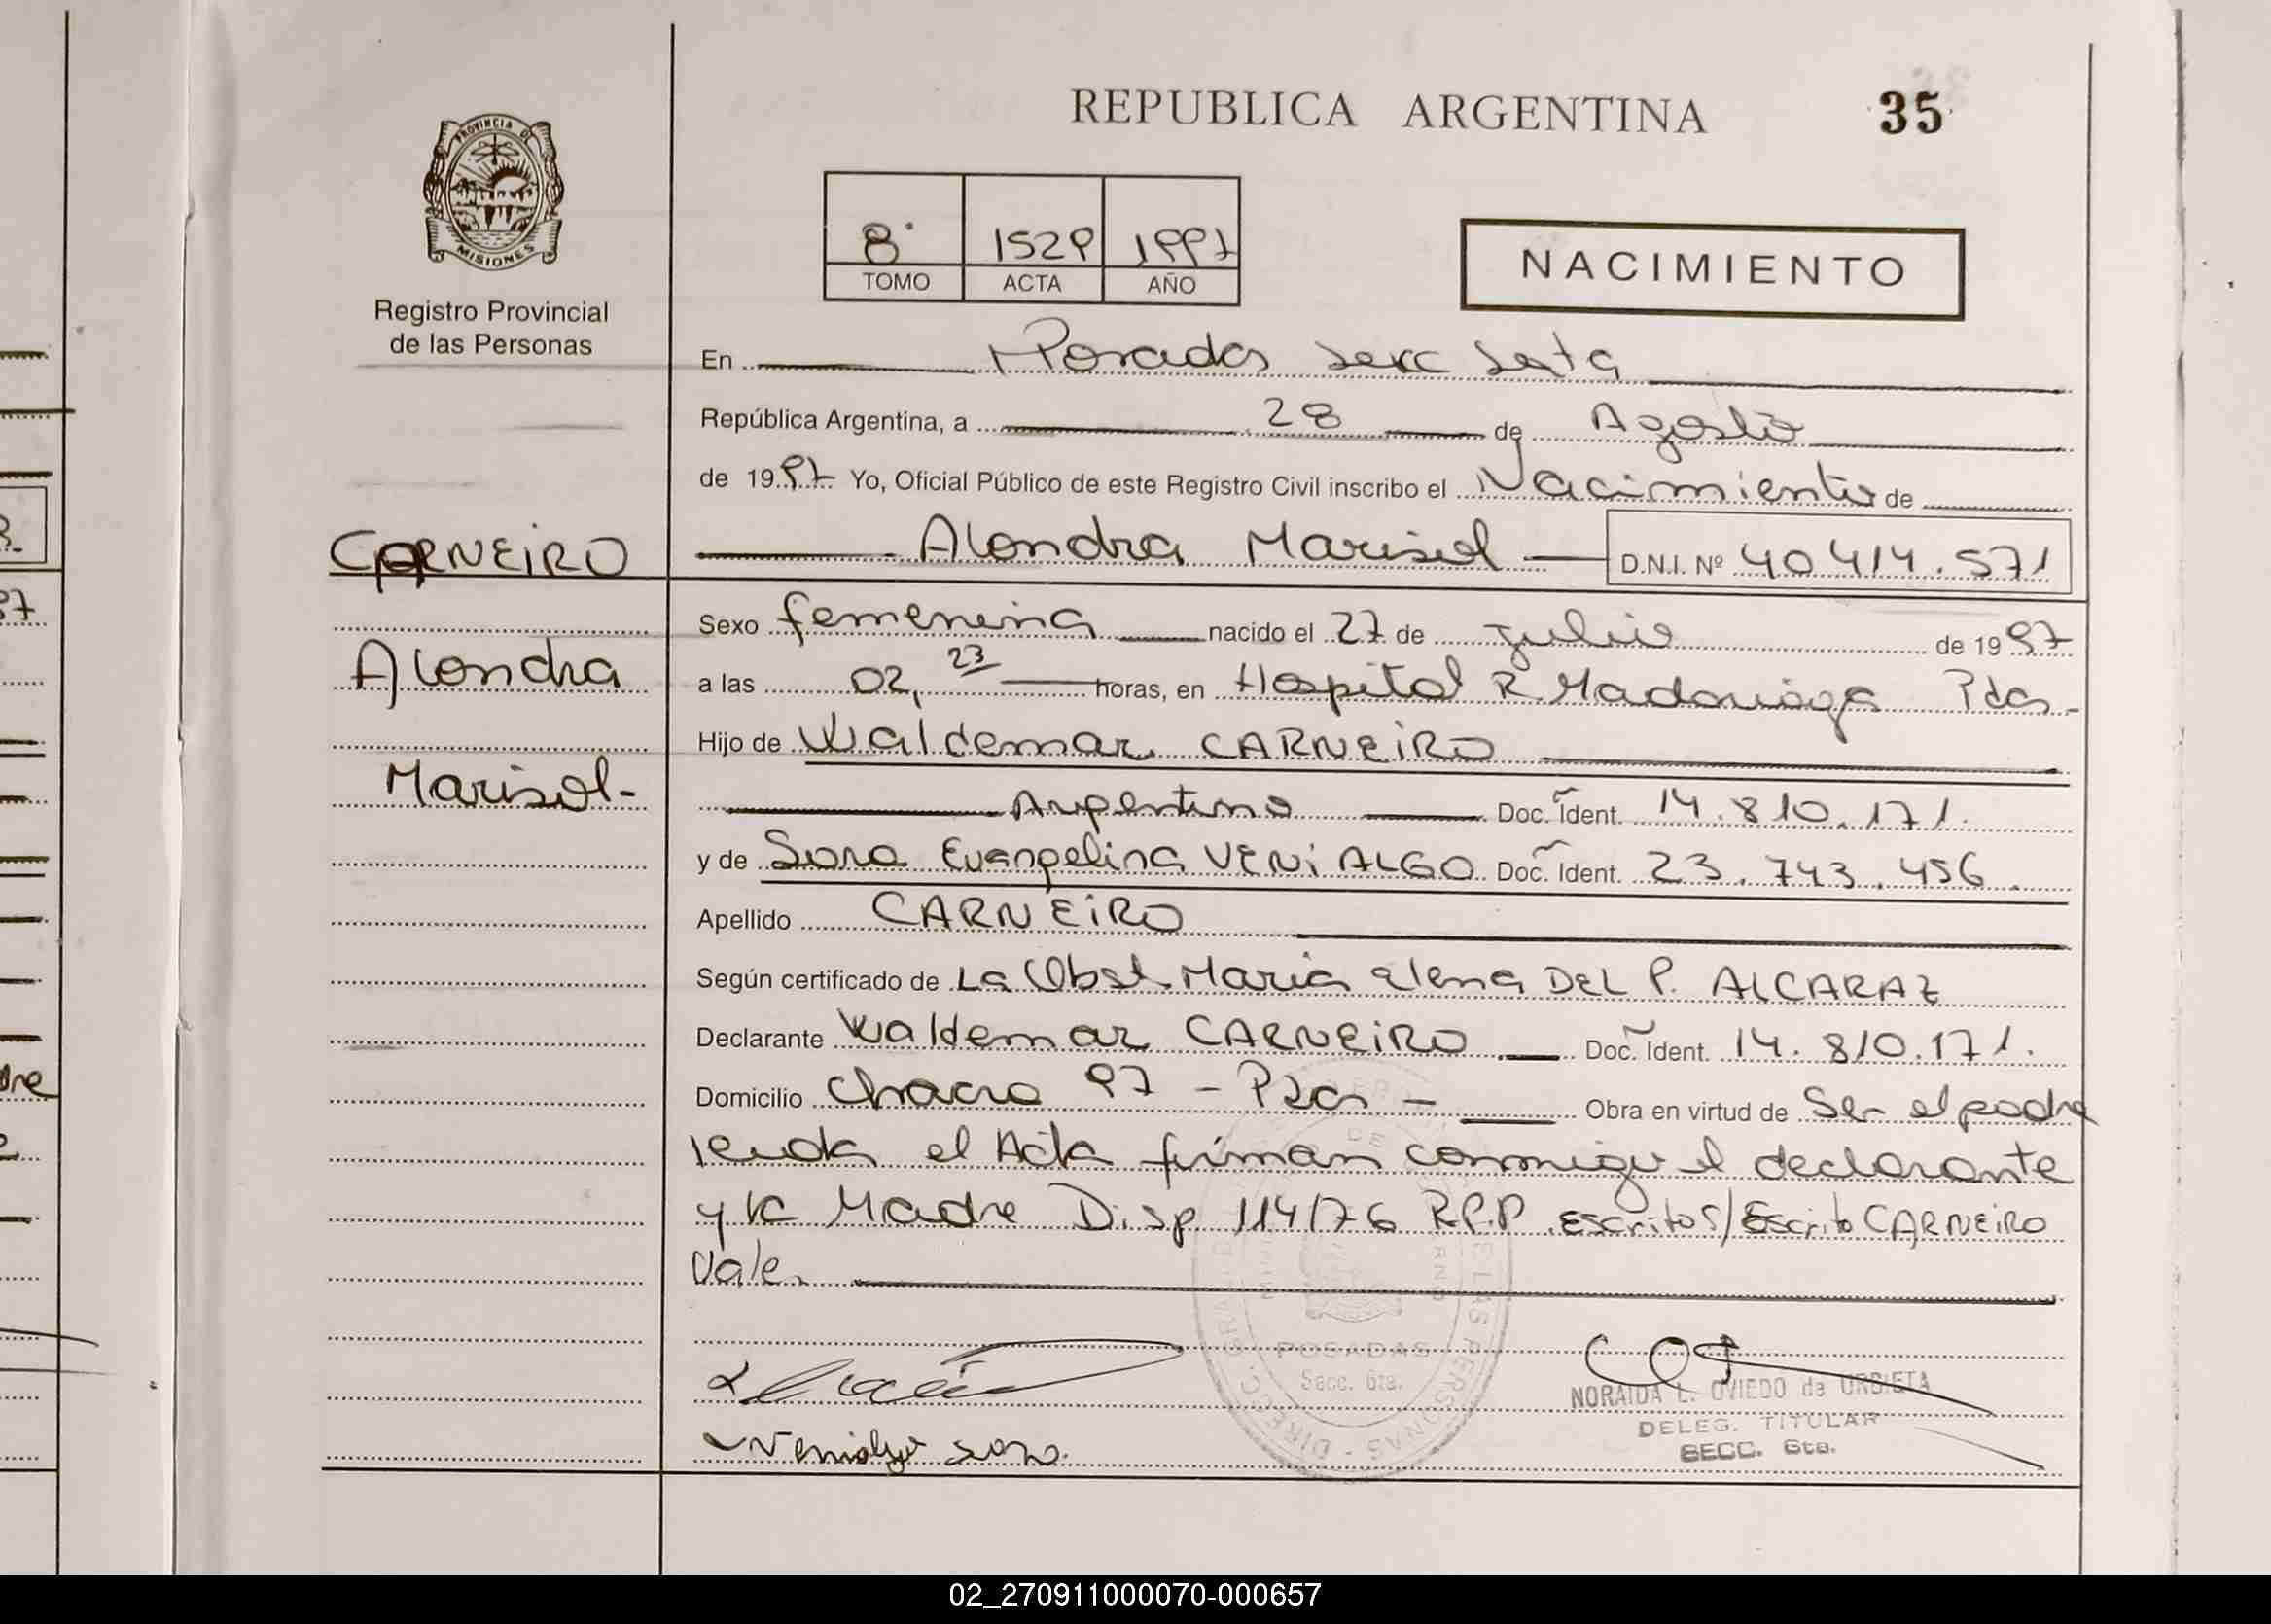 REPUBLICA ARGENTINA 35
PROVINCIA DE
MISIONES
Registro Provincial
de las Personas
8° 1529 1997
TOMO ACTA AÑO
NACIMIENTO
En Posadas Secc Sexta
República Argentina, a 28 de Agosto
de 1997 Yo, Oficial Público de este Registro Civil inscribo el Nacimiento de
CARNEIRO
Alondra Marisol D.N.I. Nº 40414.571
Sexo femenina nacido el 27 de julio de 1997
Alondra
a las 02,23 horas, en Hospital R Madariaga Pdas-
Hijo de Waldemar CARNEIRO
Marisol-
Argentino Doc. Ident. 14.810.171.
y de Sara Evangelina VENiALGO Doc. Ident. 23.743.456.
Apellido CARNEiRO
Según certificado de La Obst Maria Elena DEL P. ALCARAZ
Declarante Waldemar CARNEiRO Doc. Ident. 14.810.171.
Domicilio Chacra 97 - Pdas - Obra en virtud de Ser el padre
leida el Acta firman conmigo el declarante
y la Madre Disp 114/76 R.P.P. Escritos/Escrito CARNEiRO
Vale.
POSADAS
Secc. 6ta.
NORAIDA L. OVIEDO de URBIETA
DELEG. TITULAR
SECC. 6ta.
Venialgo Sara.
02_270911000070-000657